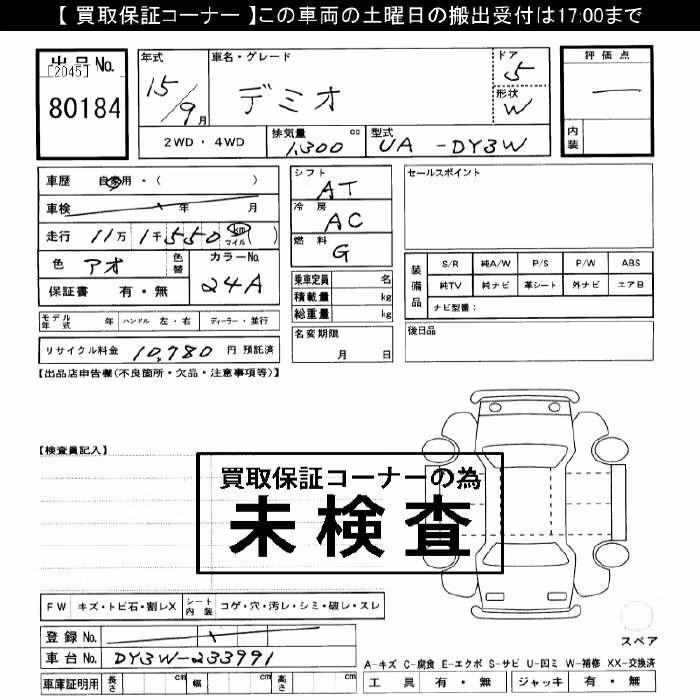 【 買取保証コーナー 】この車両の土曜日の搬出受付は17:00まで
出品No.
[2045]
80184
年式 15/9月
車名・グレード
デミオ
ドア 5
形状 W
評価点
—
内装
2WD・4WD
排気量 1,300 cc
型式 UA -DY3W
車歴 自家用・( )
車検 年 月
走行 11万 1千550 km マイル ( )
色 アオ 色替
カラーNo. 24A
保証書 有・無
シフト AT
冷房 AC
燃料 G
セールスポイント
乗車定員 名
積載量 kg
総重量 kg
装備品
S/R 純A/W P/S P/W ABS
純TV 純ナビ 革シート 外ナビ エアB
ナビ型番：
モデル年式 年 ハンドル 左・右 ディーラー・並行
名変期限 月 日
後日品
リサイクル料金 10,780 円 預託済
【出品店申告欄(不良箇所・欠品・注意事項等)】
【検査員記入】
買取保証コーナーの為
未検査
FW キズ・トビ石・割レX シート内装 コゲ・穴・汚レ・シミ・破レ・スレ
スペア
登録No.
車台No. DY3W-233991
A-キズ C-腐食 E-エクボ S-サビ U-凹ミ W-補修 XX-交換済
車庫証明用 長さ cm 幅 cm 高さ cm
工具 有・無 ジャッキ 有・無